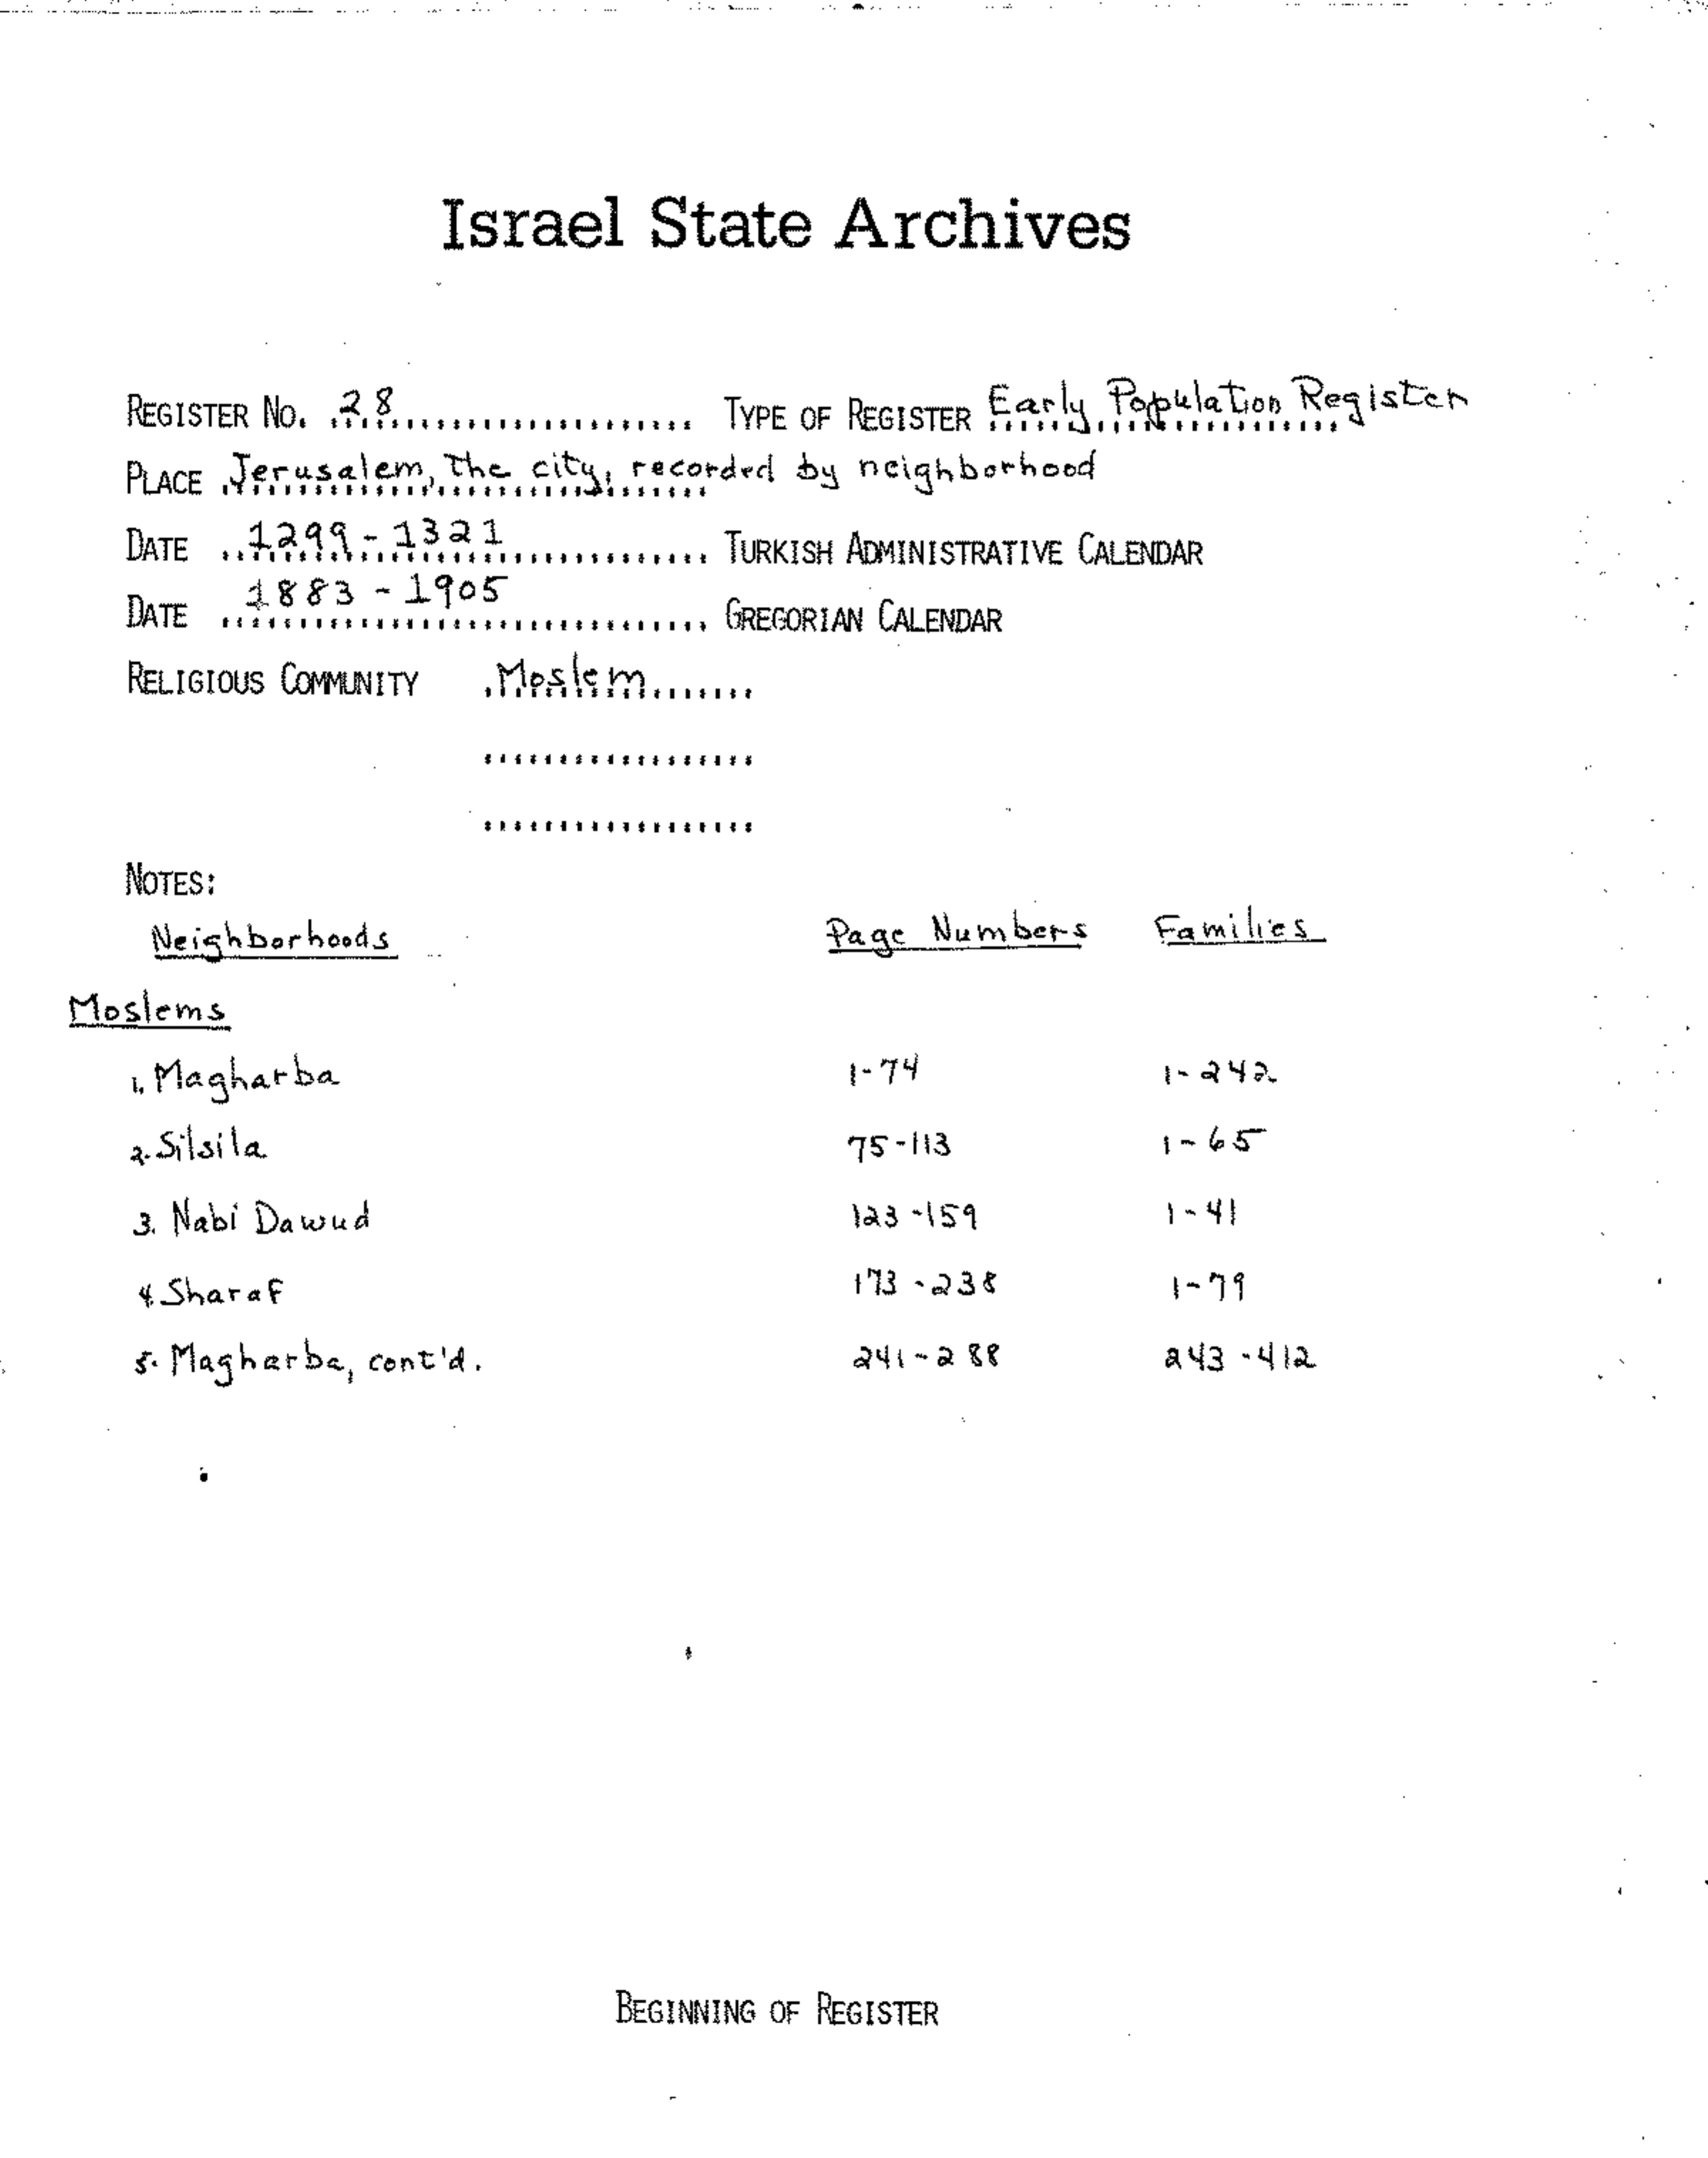 Israel State Archives
REGISTER NO. 28 TYPE OF REGISTER Early Population Register
PLACE Jerusalem, the city, recorded by neighborhood
DATE 1299 - 1321 TURKISH ADMINISTRATIVE CALENDAR
DATE 1883 - 1905 GREGORIAN CALENDAR
RELIGIOUS COMMUNITY Moslem
NOTES:
Neighborhoods Page Numbers Families
Moslems
1. Magharba 1-74 1-242
2. Silsila 75-113 1-65
3. Nabi Dawud 123-159 1-41
4. Sharaf 173-238 1-79
5. Magharba, cont'd. 241-288 243-412
BEGINNING OF REGISTER